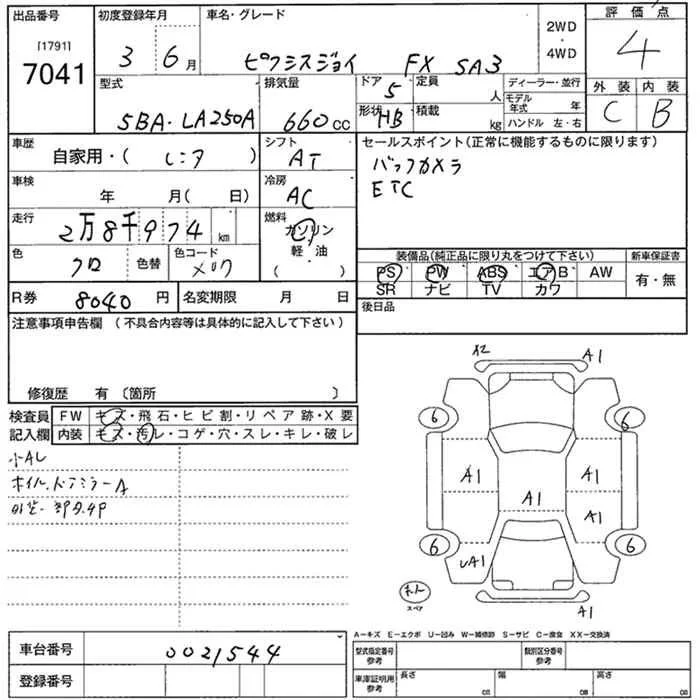 出品番号 初度登録年月 車名・グレード 2WD 4WD 評価点
[1791]
7041 3 6月 ピクシスジョイ FX SA3 4
型式 排気量 ドア 5 定員 人 ディーラー・並行 外装 内装
5BA-LA250A 660cc 形状 HB 積載 kg モデル年式 年 C B
ハンドル 左・右
車歴 シフト セールスポイント(正常に機能するものに限ります)
自家用・( レンタ ) AT バックカメラ
車検 冷房 ETC
年 月( 日) AC
走行 燃料
2万8千974km ガソリン
軽油
( )
色 色替 色コード 装備品(純正品に限り丸をつけて下さい) 新車保証書
クロ PS PW ABS エアB AW 有・無
SR ナビ TV カワ
R券 8040円 名変期限 月 日 後日品
注意事項申告欄(不具合内容等は具体的に記入して下さい)
修復歴 有〔箇所 〕
検査員 FW キズ・飛石・ヒビ割・リペア跡・X要
記入欄 内装 キズ・汚レ・コゲ・穴・スレ・キレ・破レ
小AU
ホイル、ドアミラーA
X2 A1
6 6
A1 A1
A1 A1
6 6
UA1
スペア
A1
A−キズ E−エクボ U−凹み W−補修跡 S−サビ C−腐食 XX−交換済
車台番号 0021544 型式指定番号 参考 類別区分番号 参考
登録番号 車庫証明用 参考 長さ cm 幅 cm 高さ cm